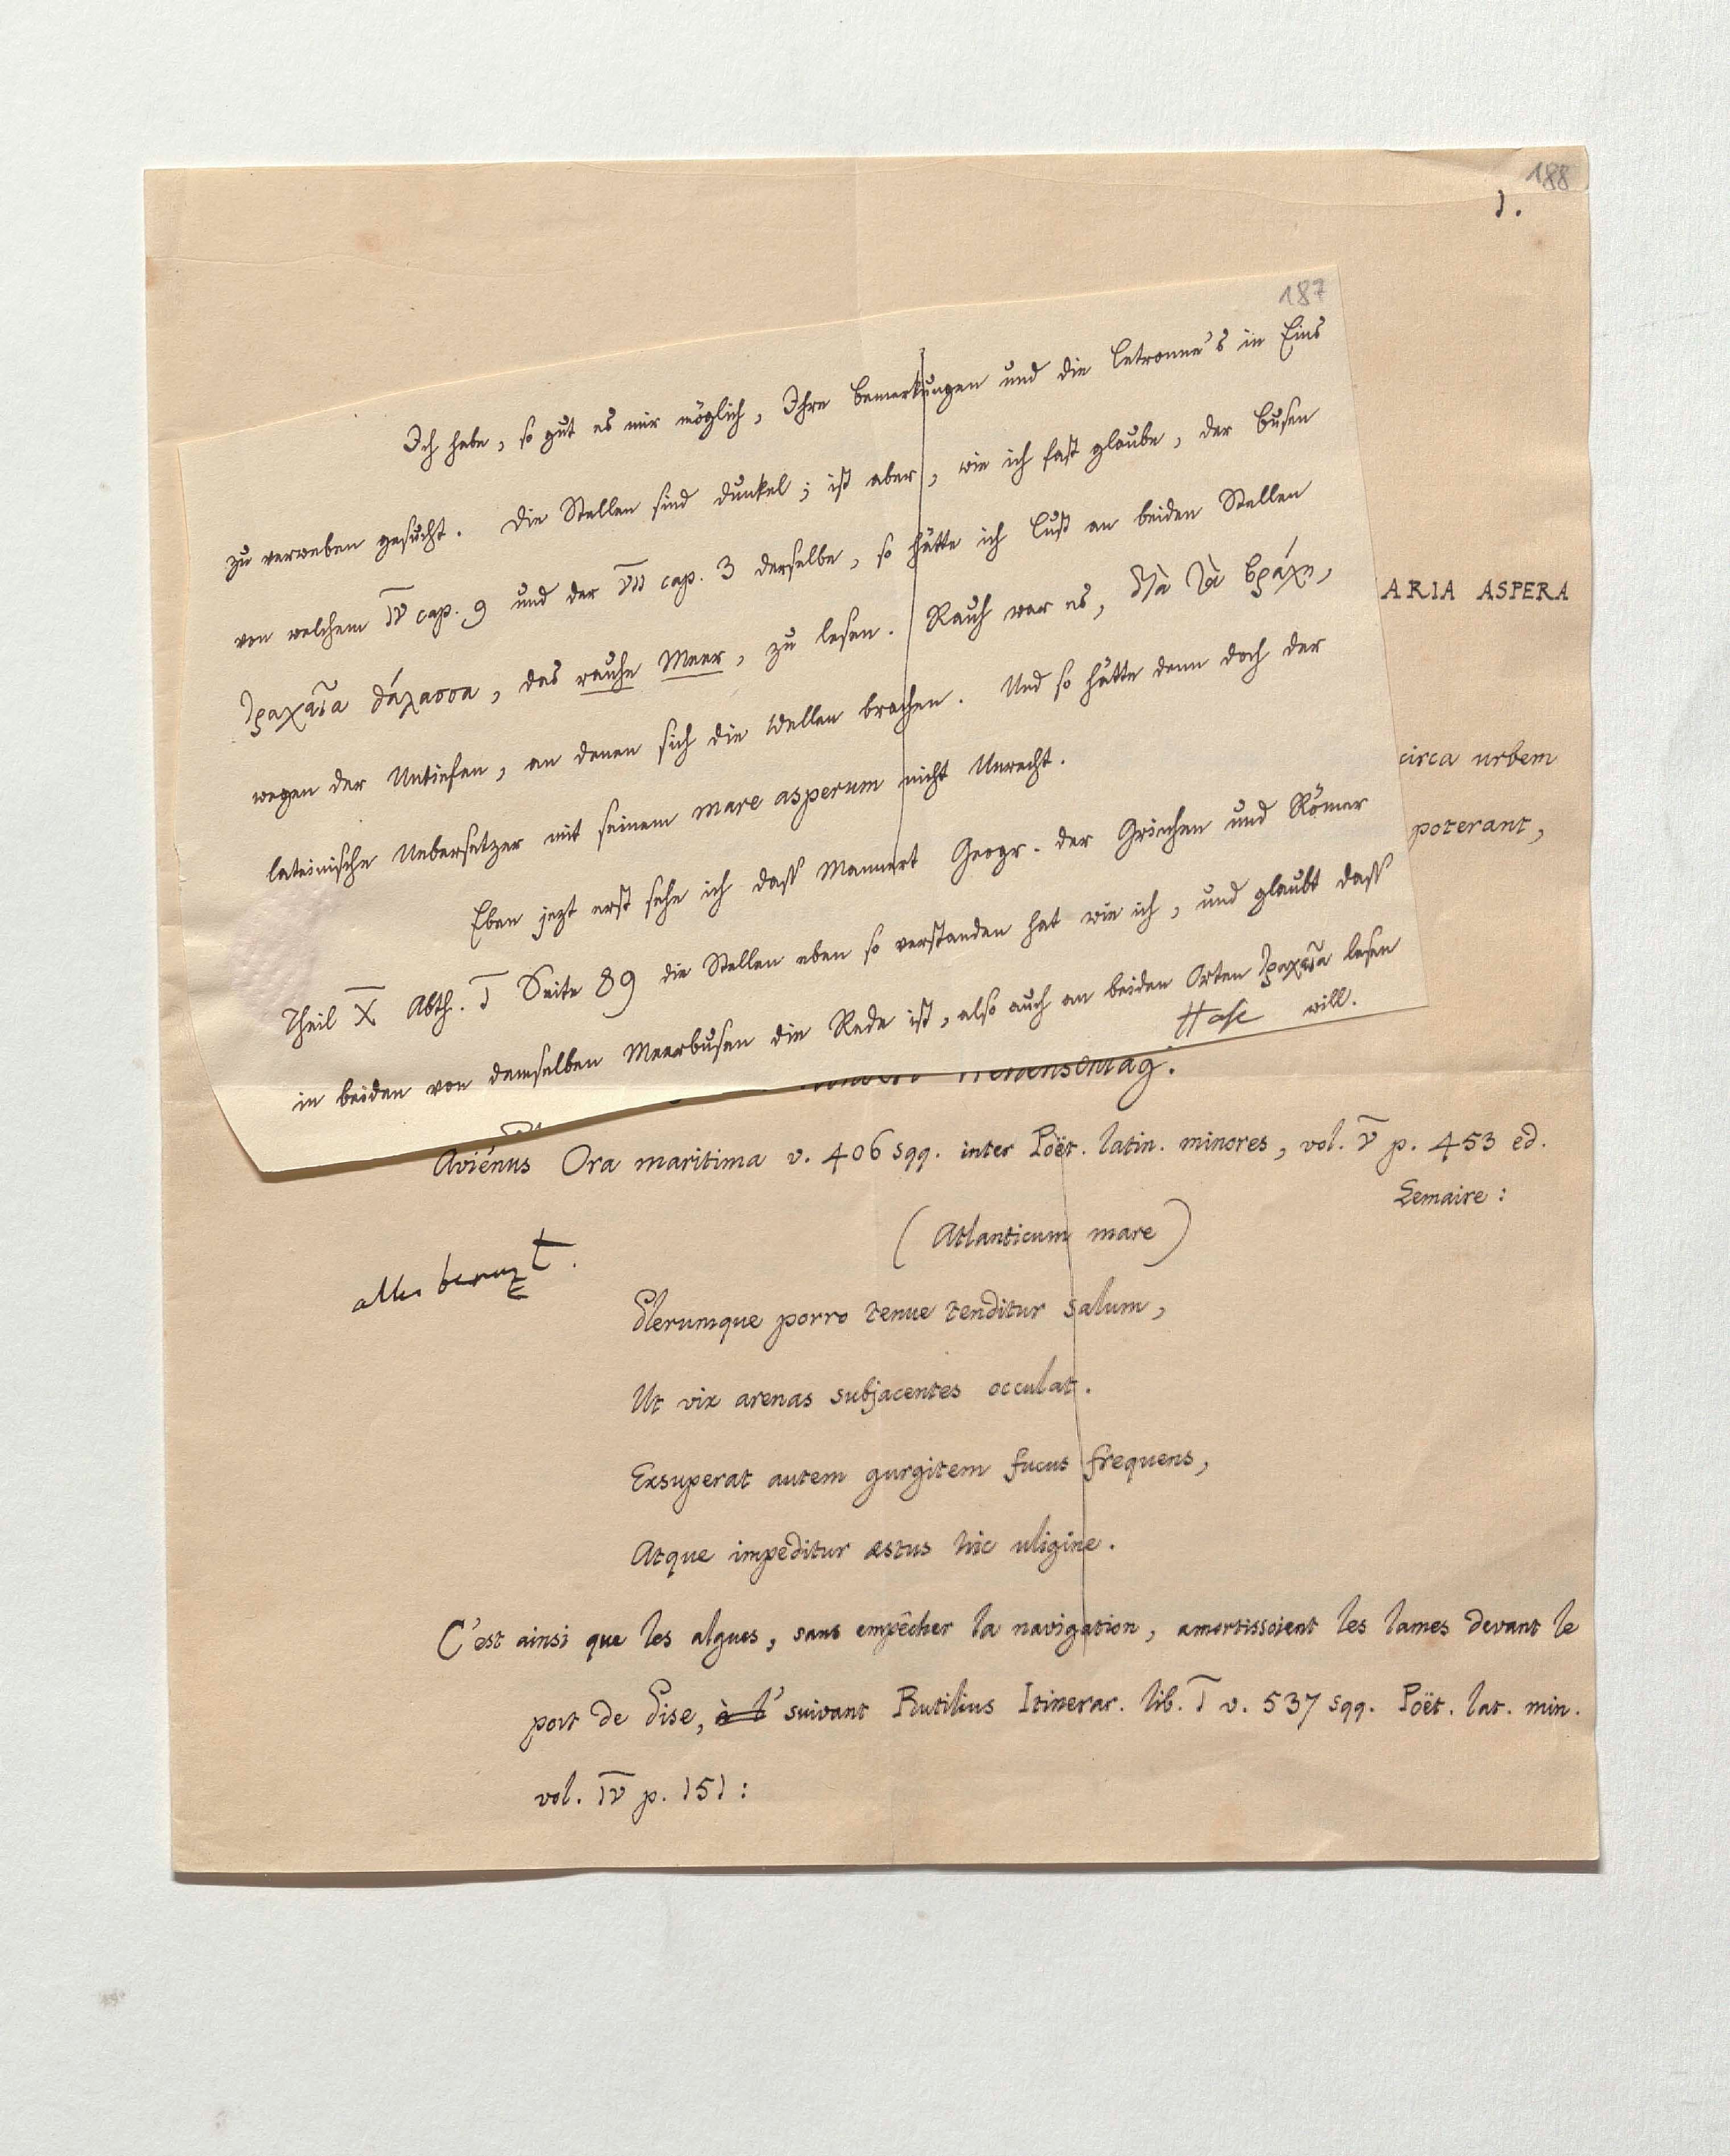 188
1.
187
Ich habe, so gut es mir möglich, Ihre Bemerkungen und die Letronne's in Eins
zu verweben gesucht. Die Stellen sind dunkel; ist aber, wie ich fast glaube, der Busen
von welchem IV cap. 9 und der VII cap. 3 derselbe, so hätte ich Lust an beiden Stellen
τραχεῖα θάλασσα, das rauhe Meer, zu lesen. Rauh war es, διὰ τὰ βράχη,
wegen der Untiefen, an denen sich die Wellen brachen. Und so hätte denn doch der
lateinische Uebersetzer mit seinem mare asperum nicht Unrecht.
Eben jezt erst sehe ich dass Mannert Geogr. der Griechen und Römer
Theil X Abth. I Seite 89 die Stellen eben so verstanden hat wie ich, und glaubt dass
in beiden von demselben Meerbusen die Rede ist, also auch an beiden Orten τραχεῖα lesen
will.
Hase
ARIA ASPERA
circa urbem
poterant,
Aviénus Ora maritima v. 406 sqq. inter Poët. latin. minores, vol. V p. 453 ed.
Lemaire:
(Atlanticum mare)
alles benuzt.
Plerumque porro tenue tenditur salum,
Ut vix arenas subjacentes occulat.
Exsuperat autem gurgitem fucus frequens,
Atque impeditur æstus hic uligine.
C'est ainsi que les algues, sans empêcher la navigation, amortissoient les lames devant le
port de Pise, à l' suivant Rutilius Itinerar. lib. I v. 537 sqq. Poët. lat. min.
vol. IV p. 151: